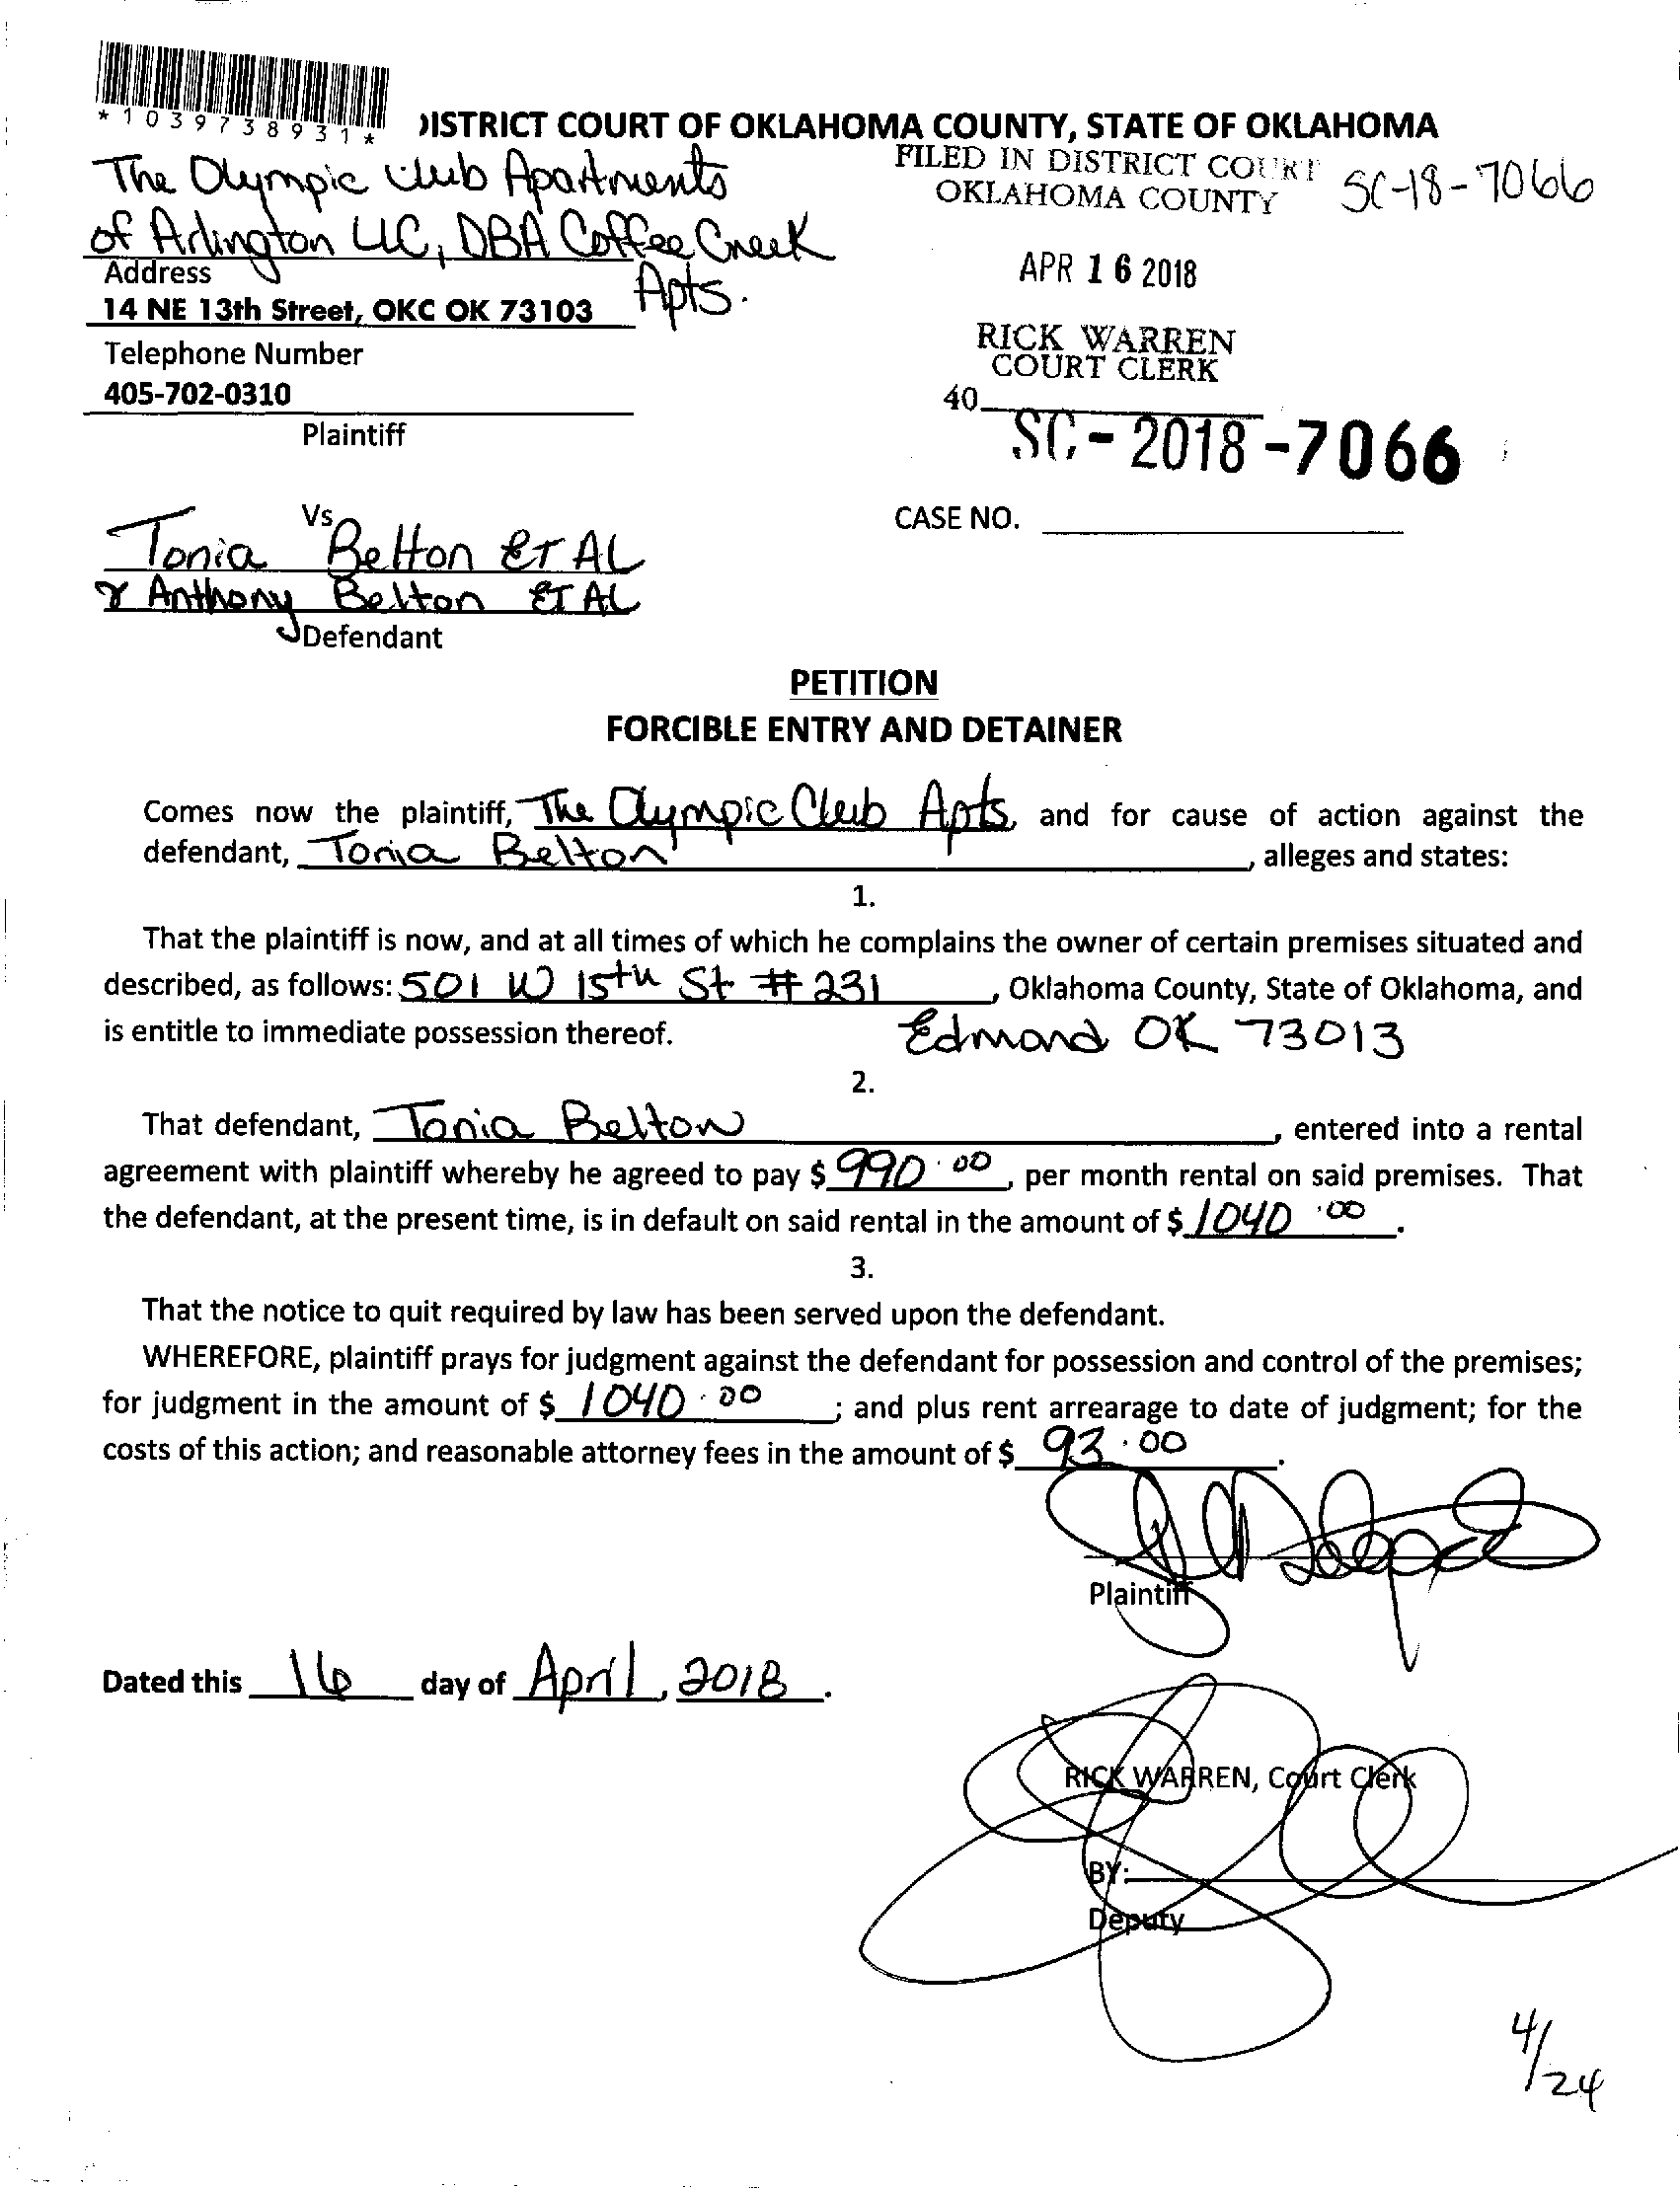 *1039738931*
DISTRICT COURT OF OKLAHOMA COUNTY, STATE OF OKLAHOMA
The Olympic Club Apartments
of Arlington LLC, DBA Coffee Creek
Apts.
Address
14 NE 13th Street, OKC OK 73103
Telephone Number
405-702-0310
Plaintiff
FILED IN DISTRICT COURT
OKLAHOMA COUNTY
SC-18-7066
APR 16 2018
RICK WARREN
COURT CLERK
40
SC-2018-7066
CASE NO.
Vs
Tonia Belton ET AL
& Anthony Belton ET AL
Defendant
PETITION
FORCIBLE ENTRY AND DETAINER
Comes now the plaintiff, The Olympic Club Apts, and for cause of action against the
defendant, Tonia Belton, alleges and states:
1.
That the plaintiff is now, and at all times of which he complains the owner of certain premises situated and
described, as follows: 501 W 15th St # 231, Oklahoma County, State of Oklahoma, and
is entitle to immediate possession thereof. Edmond OK 73013
2.
That defendant, Tonia Belton, entered into a rental
agreement with plaintiff whereby he agreed to pay $ 990.00, per month rental on said premises. That
the defendant, at the present time, is in default on said rental in the amount of $ 1040.00.
3.
That the notice to quit required by law has been served upon the defendant.
WHEREFORE, plaintiff prays for judgment against the defendant for possession and control of the premises;
for judgment in the amount of $ 1040.00; and plus rent arrearage to date of judgment; for the
costs of this action; and reasonable attorney fees in the amount of $ 93.00.
Plaintiff
Dated this 16 day of April, 2018.
RICK WARREN, Court Clerk
BY:
Deputy
4/24